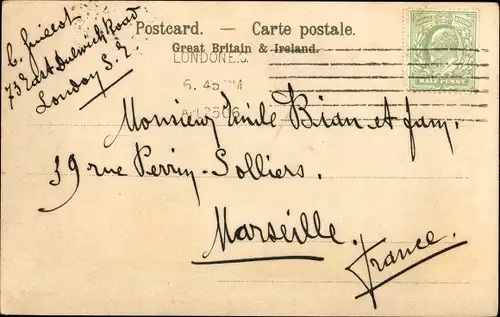 C. Guiest
73 East Dulwich Road
London S.E.
Postcard. — Carte postale.
Great Britain & Ireland.
LONDON E.C.
6.45 PM
Monsieur Emile Bian et fam.
39 rue Perrin-Solliers.
Marseille.
France.